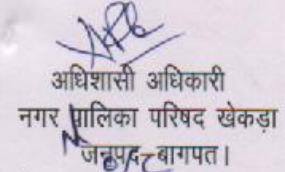 अधिशासी अधिकारी
नगर पालिका परिषद खेकड़ा
जनपद-बागपत।